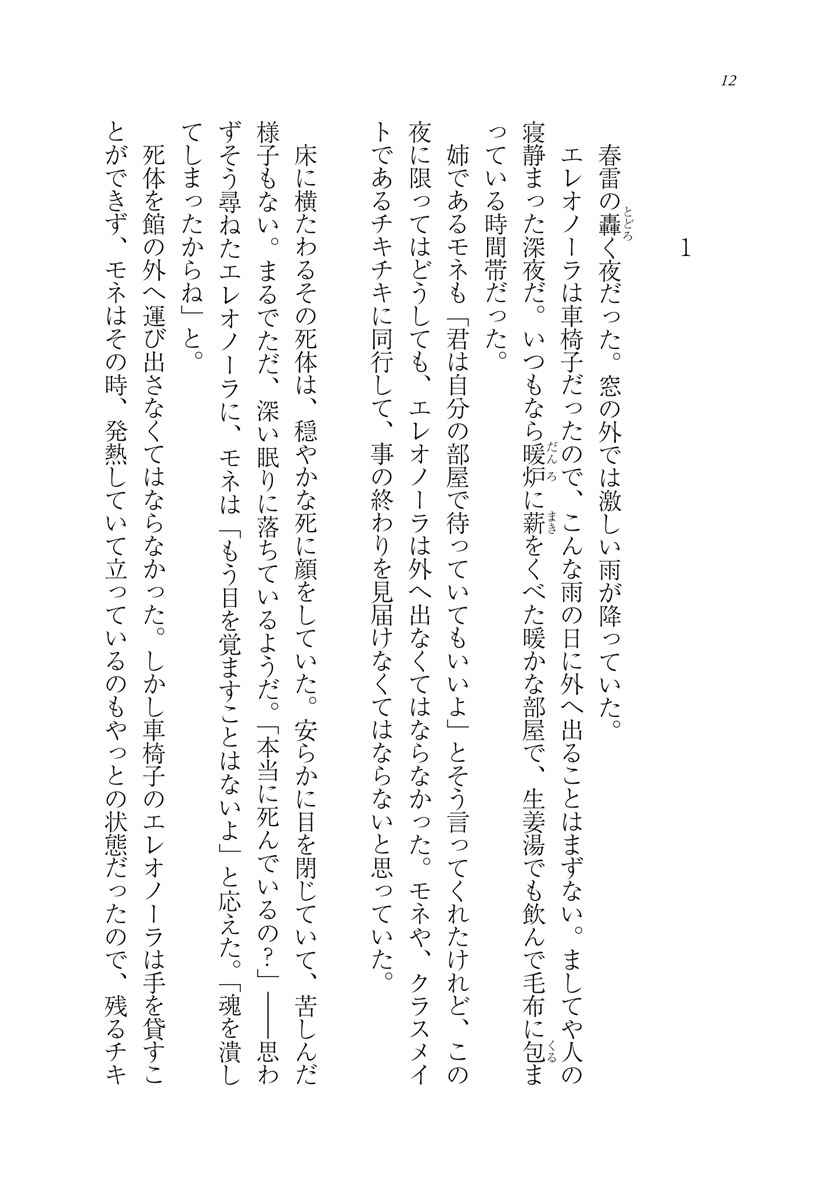 12
1
春雷の轟く夜だった。窓の外では激しい雨が降っていた。
エレオノーラは車椅子だったので、こんな雨の日に外へ出ることはまずない。ましてや人の
寝静まった深夜だ。いつもなら暖炉に薪をくべた暖かな部屋で、生姜湯でも飲んで毛布に包ま
っている時間帯だった。
姉であるモネも「君は自分の部屋で待っていてもいいよ」とそう言ってくれたけれど、この
夜に限ってはどうしても、エレオノーラは外へ出なくてはならなかった。モネや、クラスメイ
トであるチキチキに同行して、事の終わりを見届けなくてはならないと思っていた。
床に横たわるその死体は、穏やかな死に顔をしていた。安らかに目を閉じていて、苦しんだ
様子もない。まるでただ、深い眠りに落ちているようだ。「本当に死んでいるの？」――思わ
ずそう尋ねたエレオノーラに、モネは「もう目を覚ますことはないよ」と応えた。「魂を潰し
てしまったからね」と。
死体を館の外へ運び出さなくてはならなかった。しかし車椅子のエレオノーラは手を貸すこ
とができず、モネはその時、発熱していて立っているのもやっとの状態だったので、残るチキ